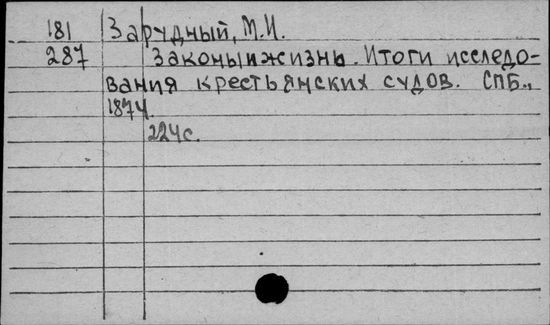 181 Зарудный, М.И.
287 Законы и жизнь. Итоги исследо-
вания крестьянских судов. СПБ.,
1874.
224с.